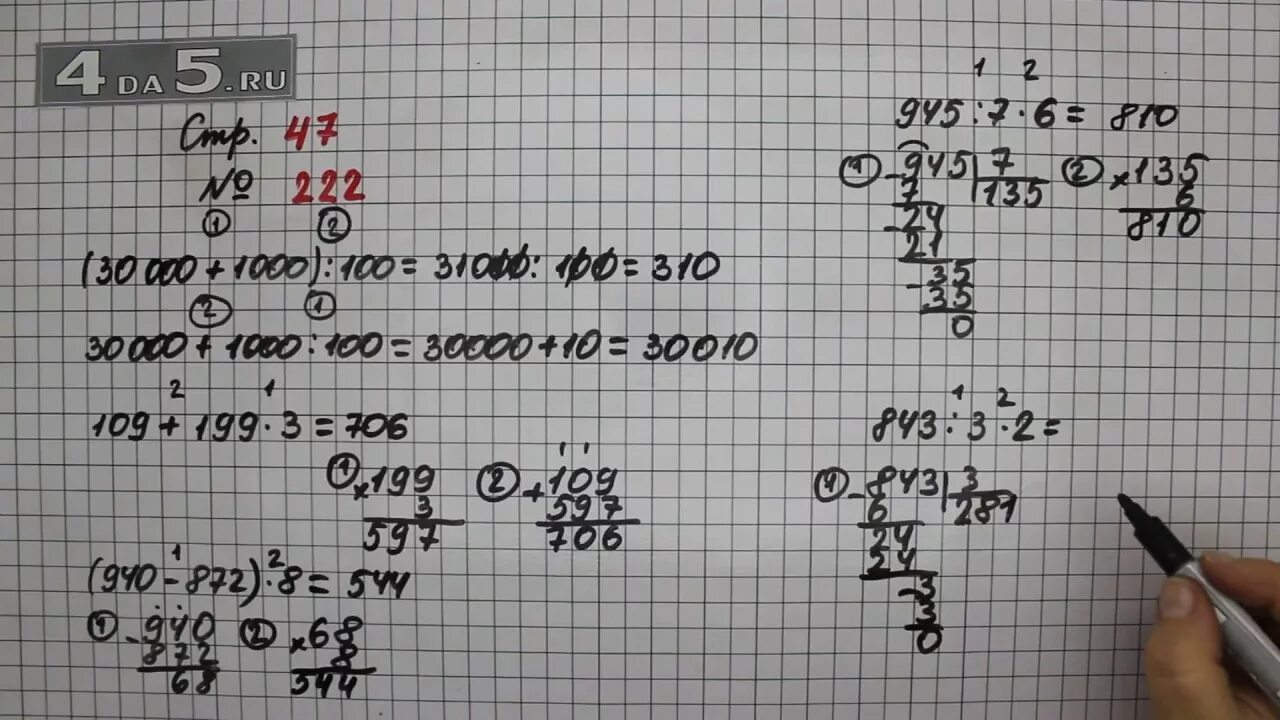 4DA5.RU
Стр. 47
№ 222
① ②
(30 000 + 1000) : 100 = 31000 : 100 = 310
② ①
30 000 + 1000 : 100 = 30000 + 10 = 30010
2 1
109 + 199 · 3 = 706
① × 199
3
597
② + 109
597
706
1 2
(940 - 872) · 8 = 544
① - 940
872
68
② × 68
8
544
1 2
945 : 7 · 6 = 810
① - 945 | 7
7 135
- 24
21
- 35
35
0
② × 135
6
810
1 2
843 : 3 · 2 =
① - 843 | 3
6 281
24
24
- 3
3
0